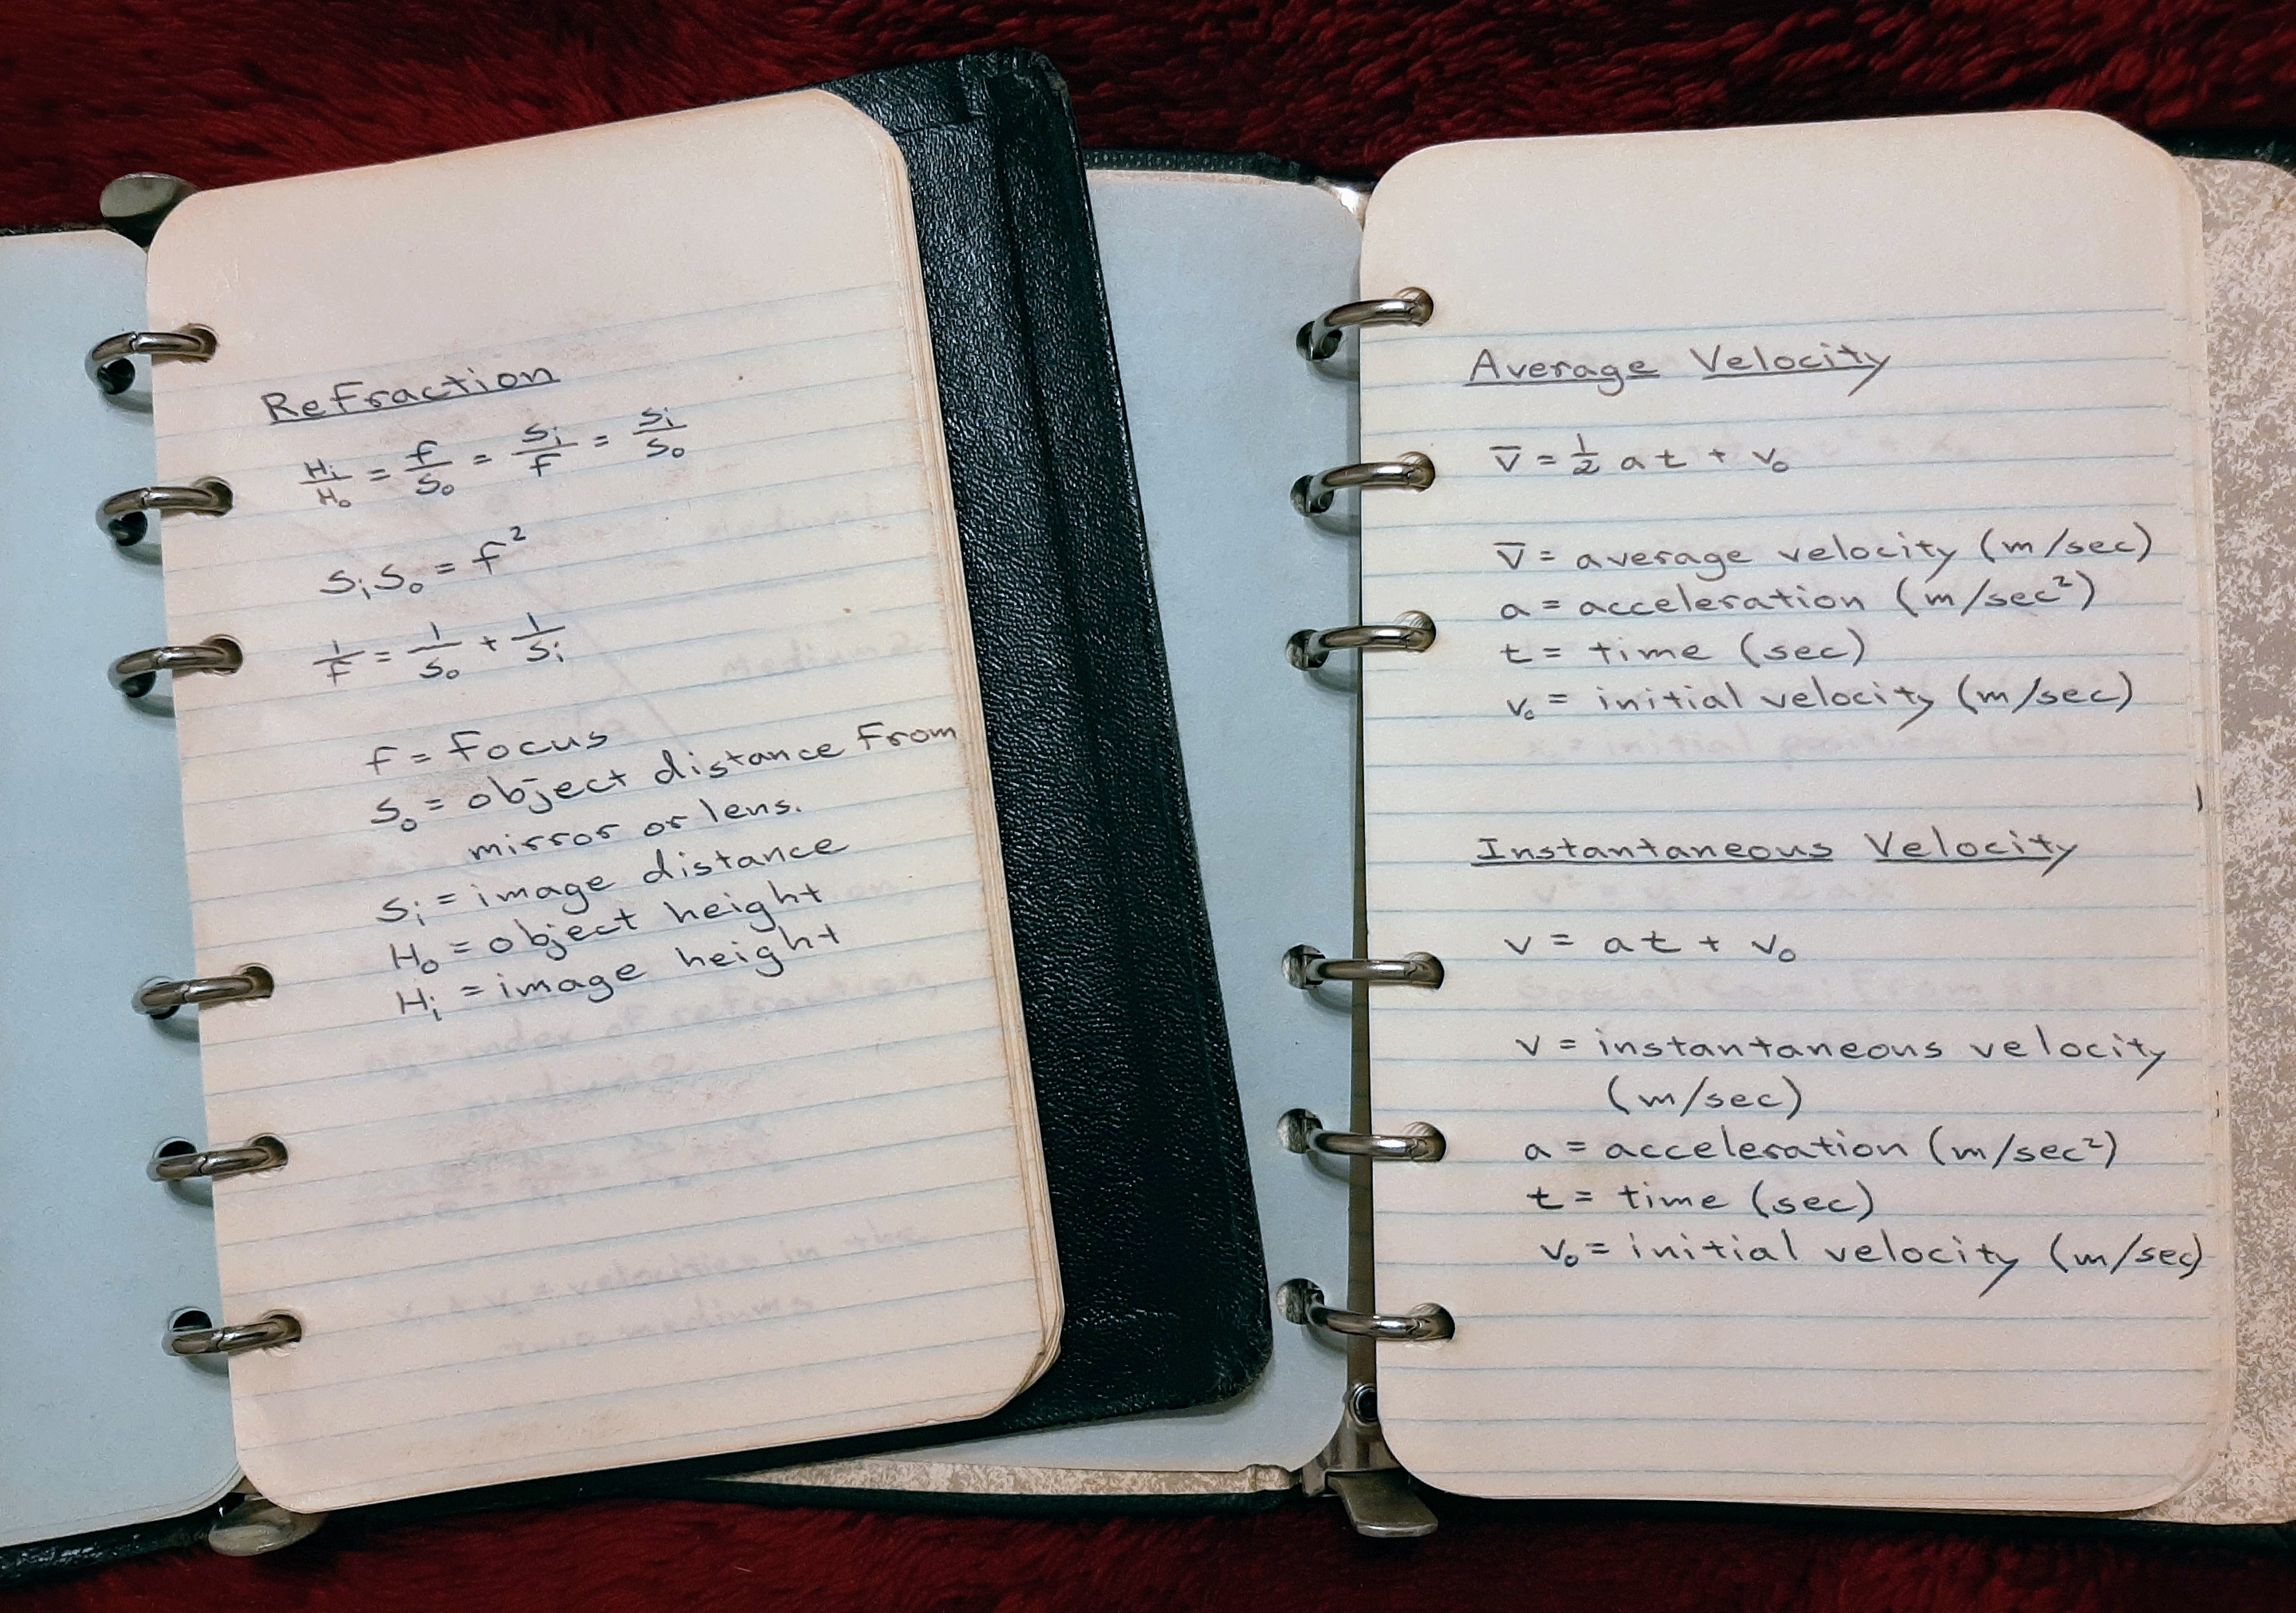 Refraction
Hi/Ho = f/So = Si/f = Si/So
SiSo = f²
1/f = 1/So + 1/Si
f = focus
So = object distance from
mirror or lens.
Si = image distance
Ho = object height
Hi = image height
Average Velocity
v̅ = 1/2 at + v₀
v̅ = average velocity (m/sec)
a = acceleration (m/sec²)
t = time (sec)
v₀ = initial velocity (m/sec)
Instantaneous Velocity
v = at + v₀
v = instantaneous velocity
(m/sec)
a = acceleration (m/sec²)
t = time (sec)
v₀ = initial velocity (m/sec)